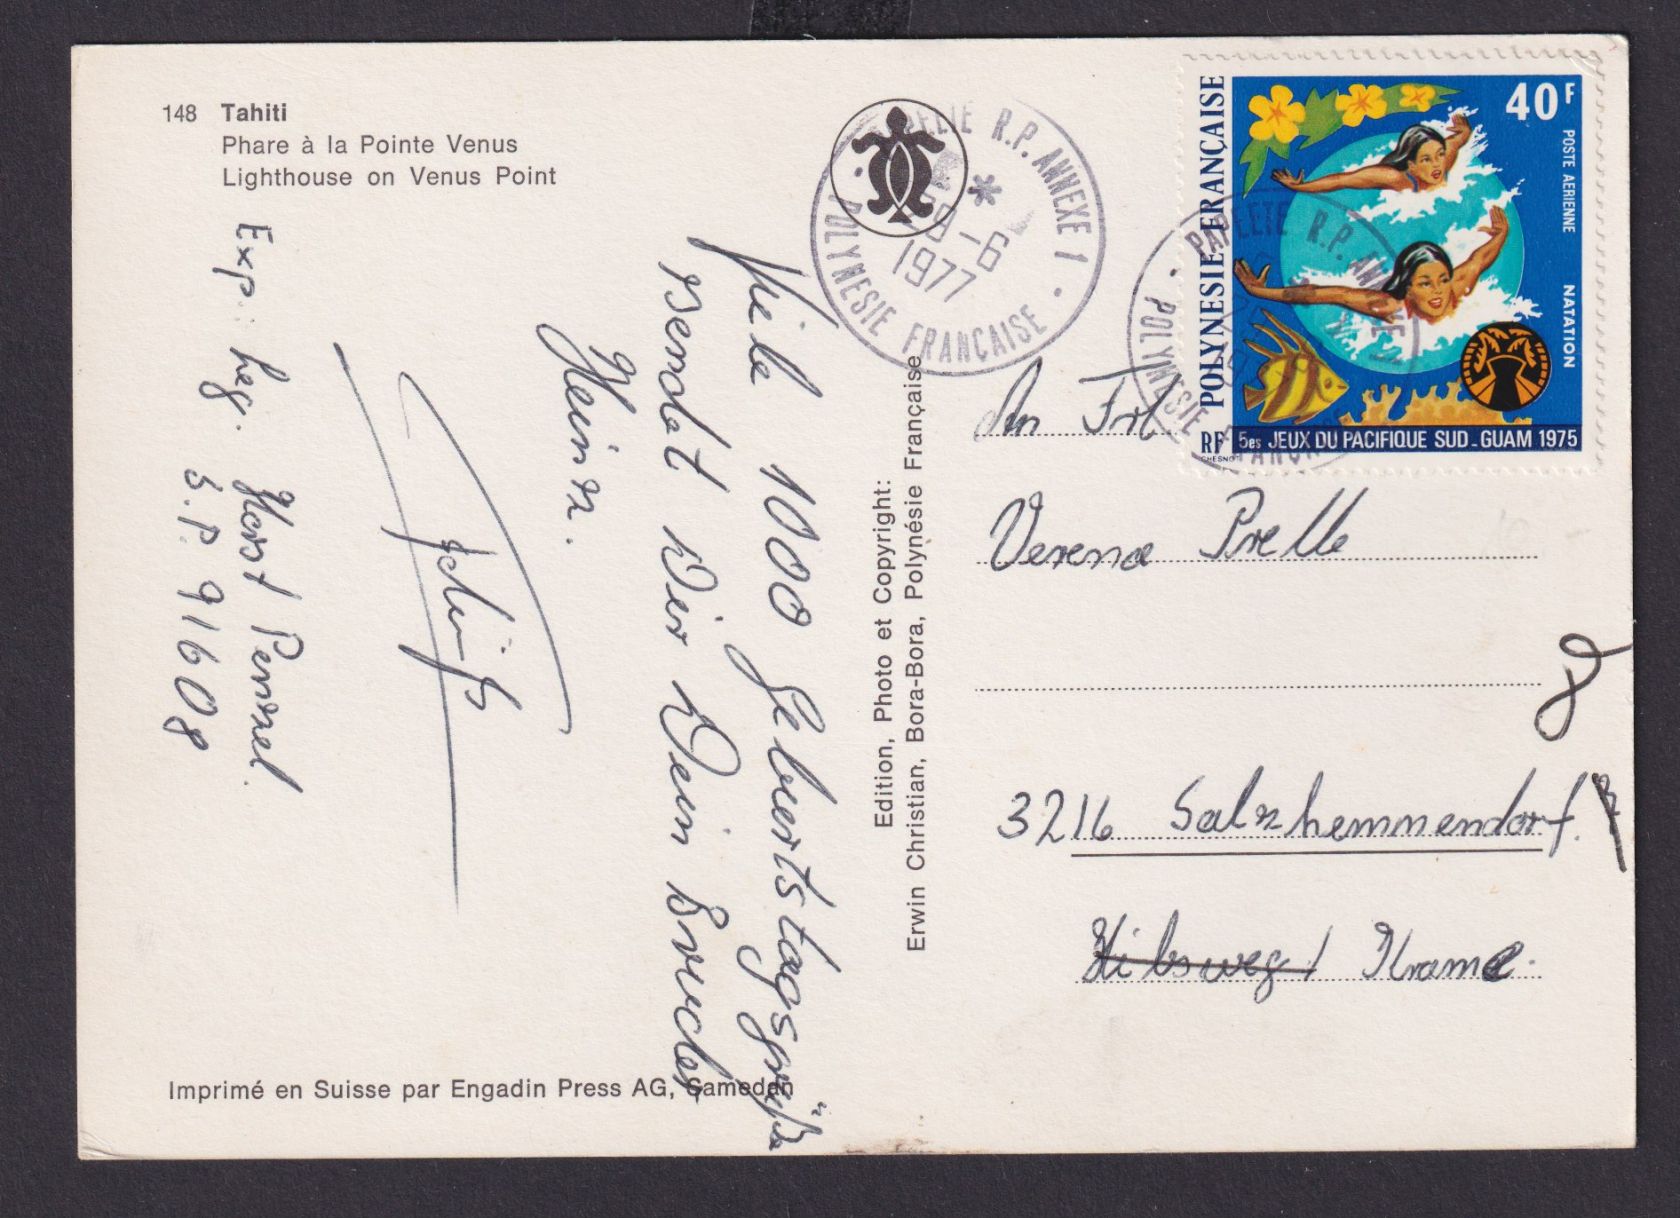 148 Tahiti
Phare à la Pointe Venus
Lighthouse on Venus Point
Viele 1000 Geburtstagsgrüße
sendet Dir Dein Bruder
Heinz.
Exp: Leg. Horst Pensel
S.P. 91608
Imprimé en Suisse par Engadin Press AG, Samedan
Edition, Photo et Copyright:
Erwin Christian, Bora-Bora, Polynésie Française
PAPEETE R.P. ANNEXE 1
*
29-6
1977
POLYNESIE FRANCAISE
POLYNESIE FRANÇAISE
40F
POSTE AERIENNE
NATATION
RF
5es JEUX DU PACIFIQUE SUD-GUAM 1975
CHESNOT
PAPEETE R.P. ANNEXE 1
POLYNESIE FRANCAISE
An Frl
Verena Prelle
3216 Salzhemmendorf.
Krame